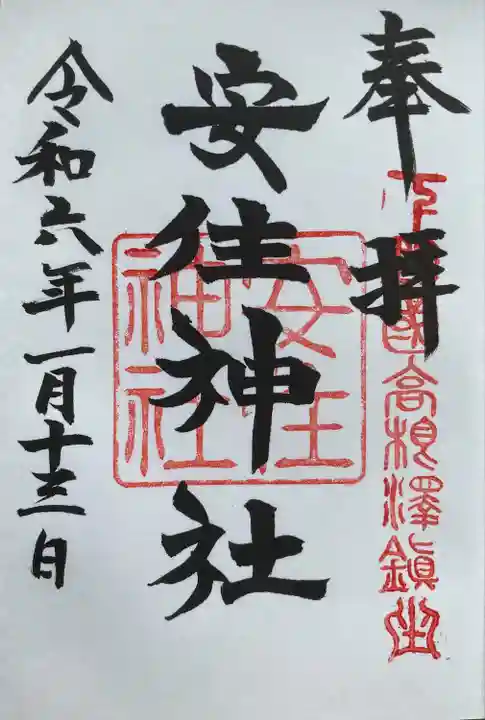 奉拝
下野國高根澤鎮坐
安住神社
安住
神社
令和六年一月十三日